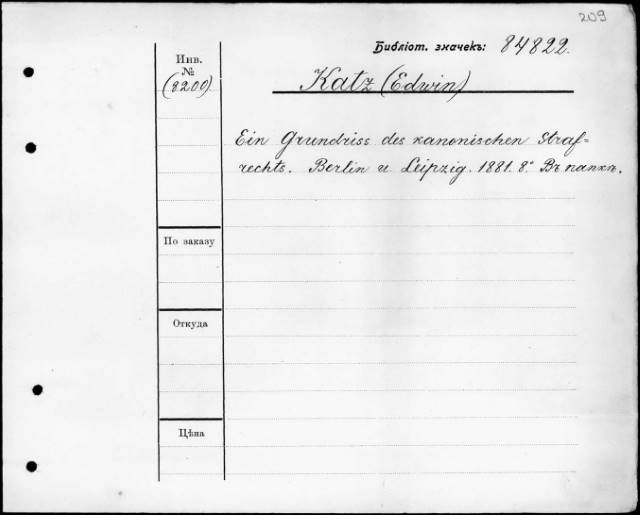 209
Библіот. значекъ: 84822.
Инв.
№
(8200)
Katz (Edwin)
Ein Grundriss des kanonischen Straf=
rechts. Berlin u. Leipzig. 1881. 8° Въ папкѣ.
По заказу
Откуда
Цѣна